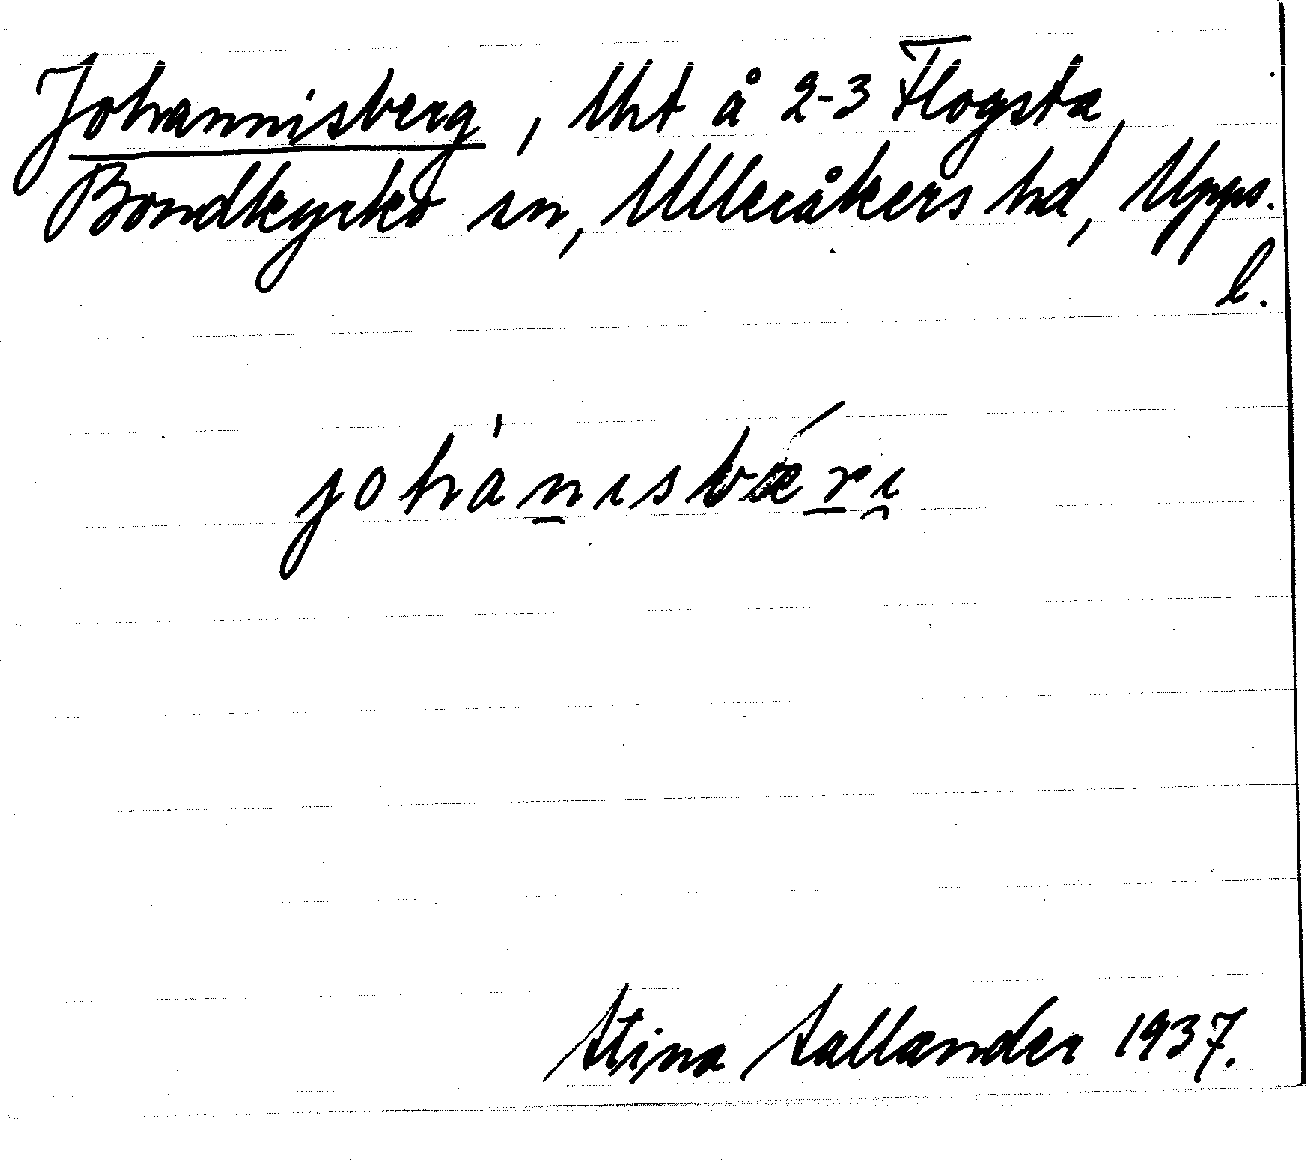 Johannisberg, lht å 2-3 Flogsta,
Bondkyrko sn, Ulleråkers hd, Upps.
l.
johánisbǽri
Stina Sallander 1937.